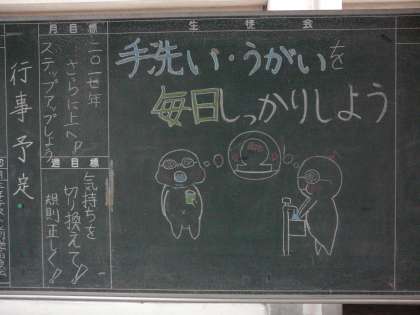 生徒会
手洗い・うがいを
毎日しっかりしよう
月目標
二〇一七年
さらに上へ!
ステップアップしよう
週目標
気持ちを
切り換えて!
規則正しく!!
行事予定